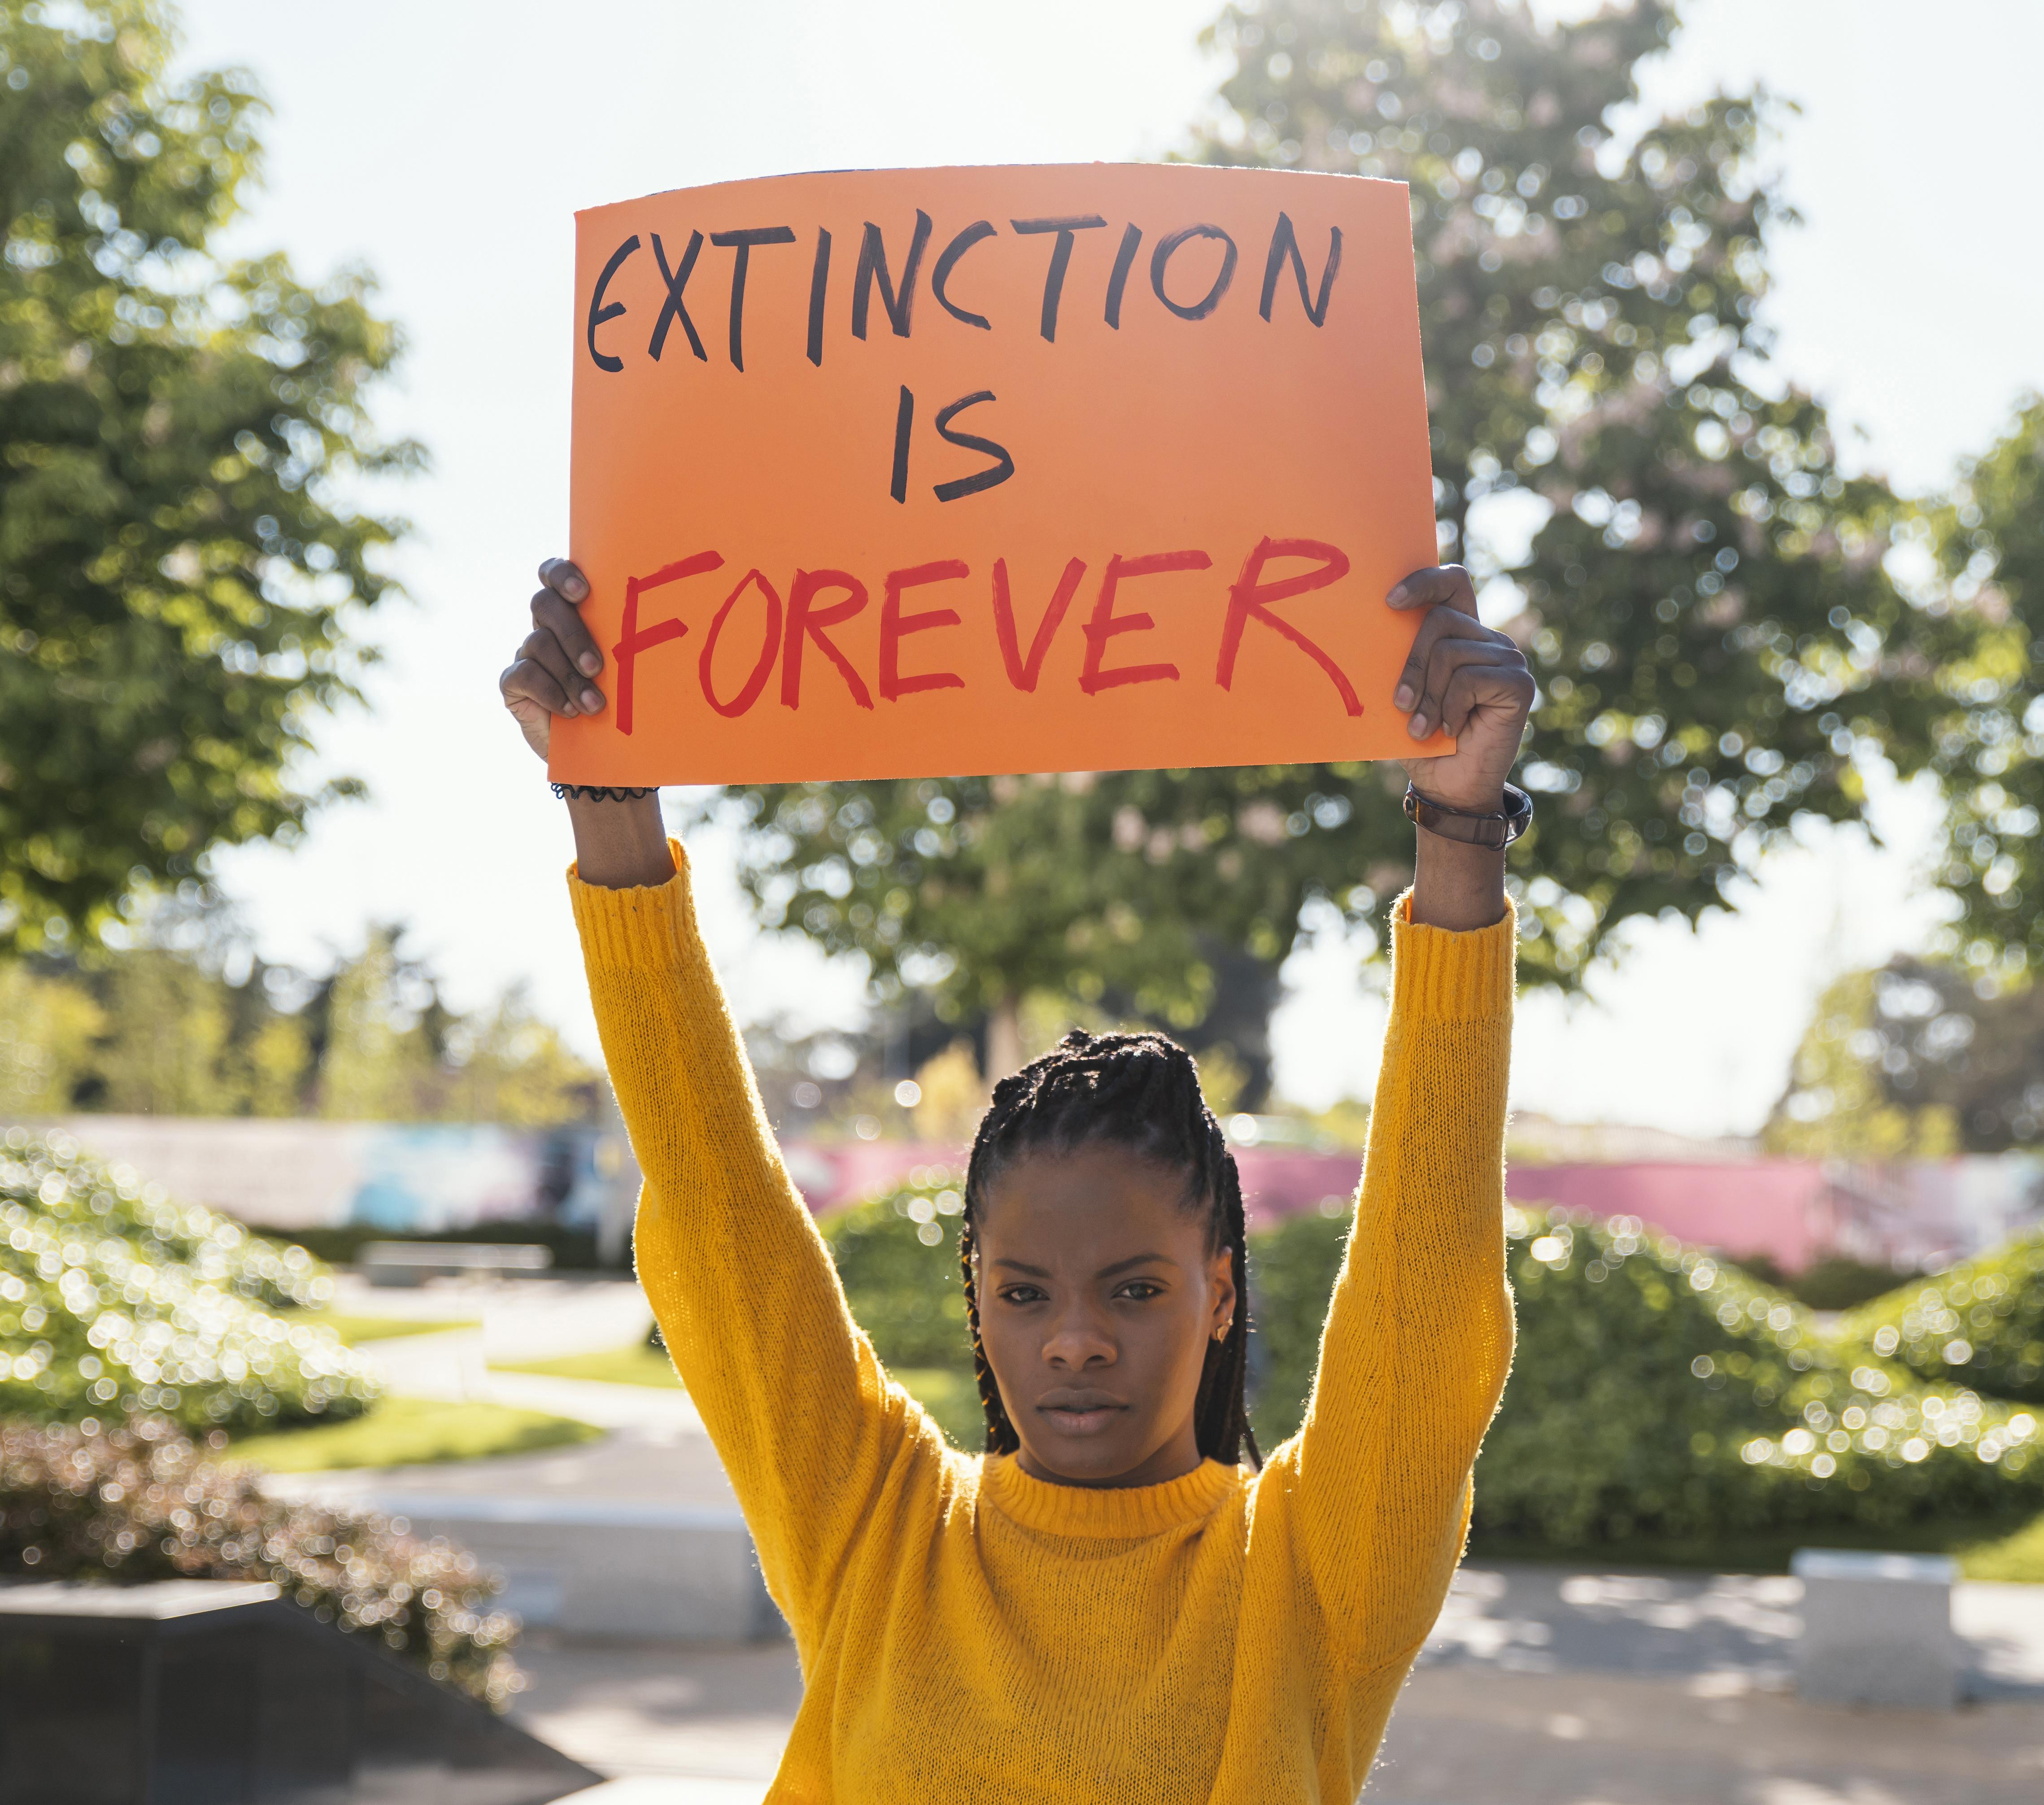 EXTINCTION
IS
FOREVER